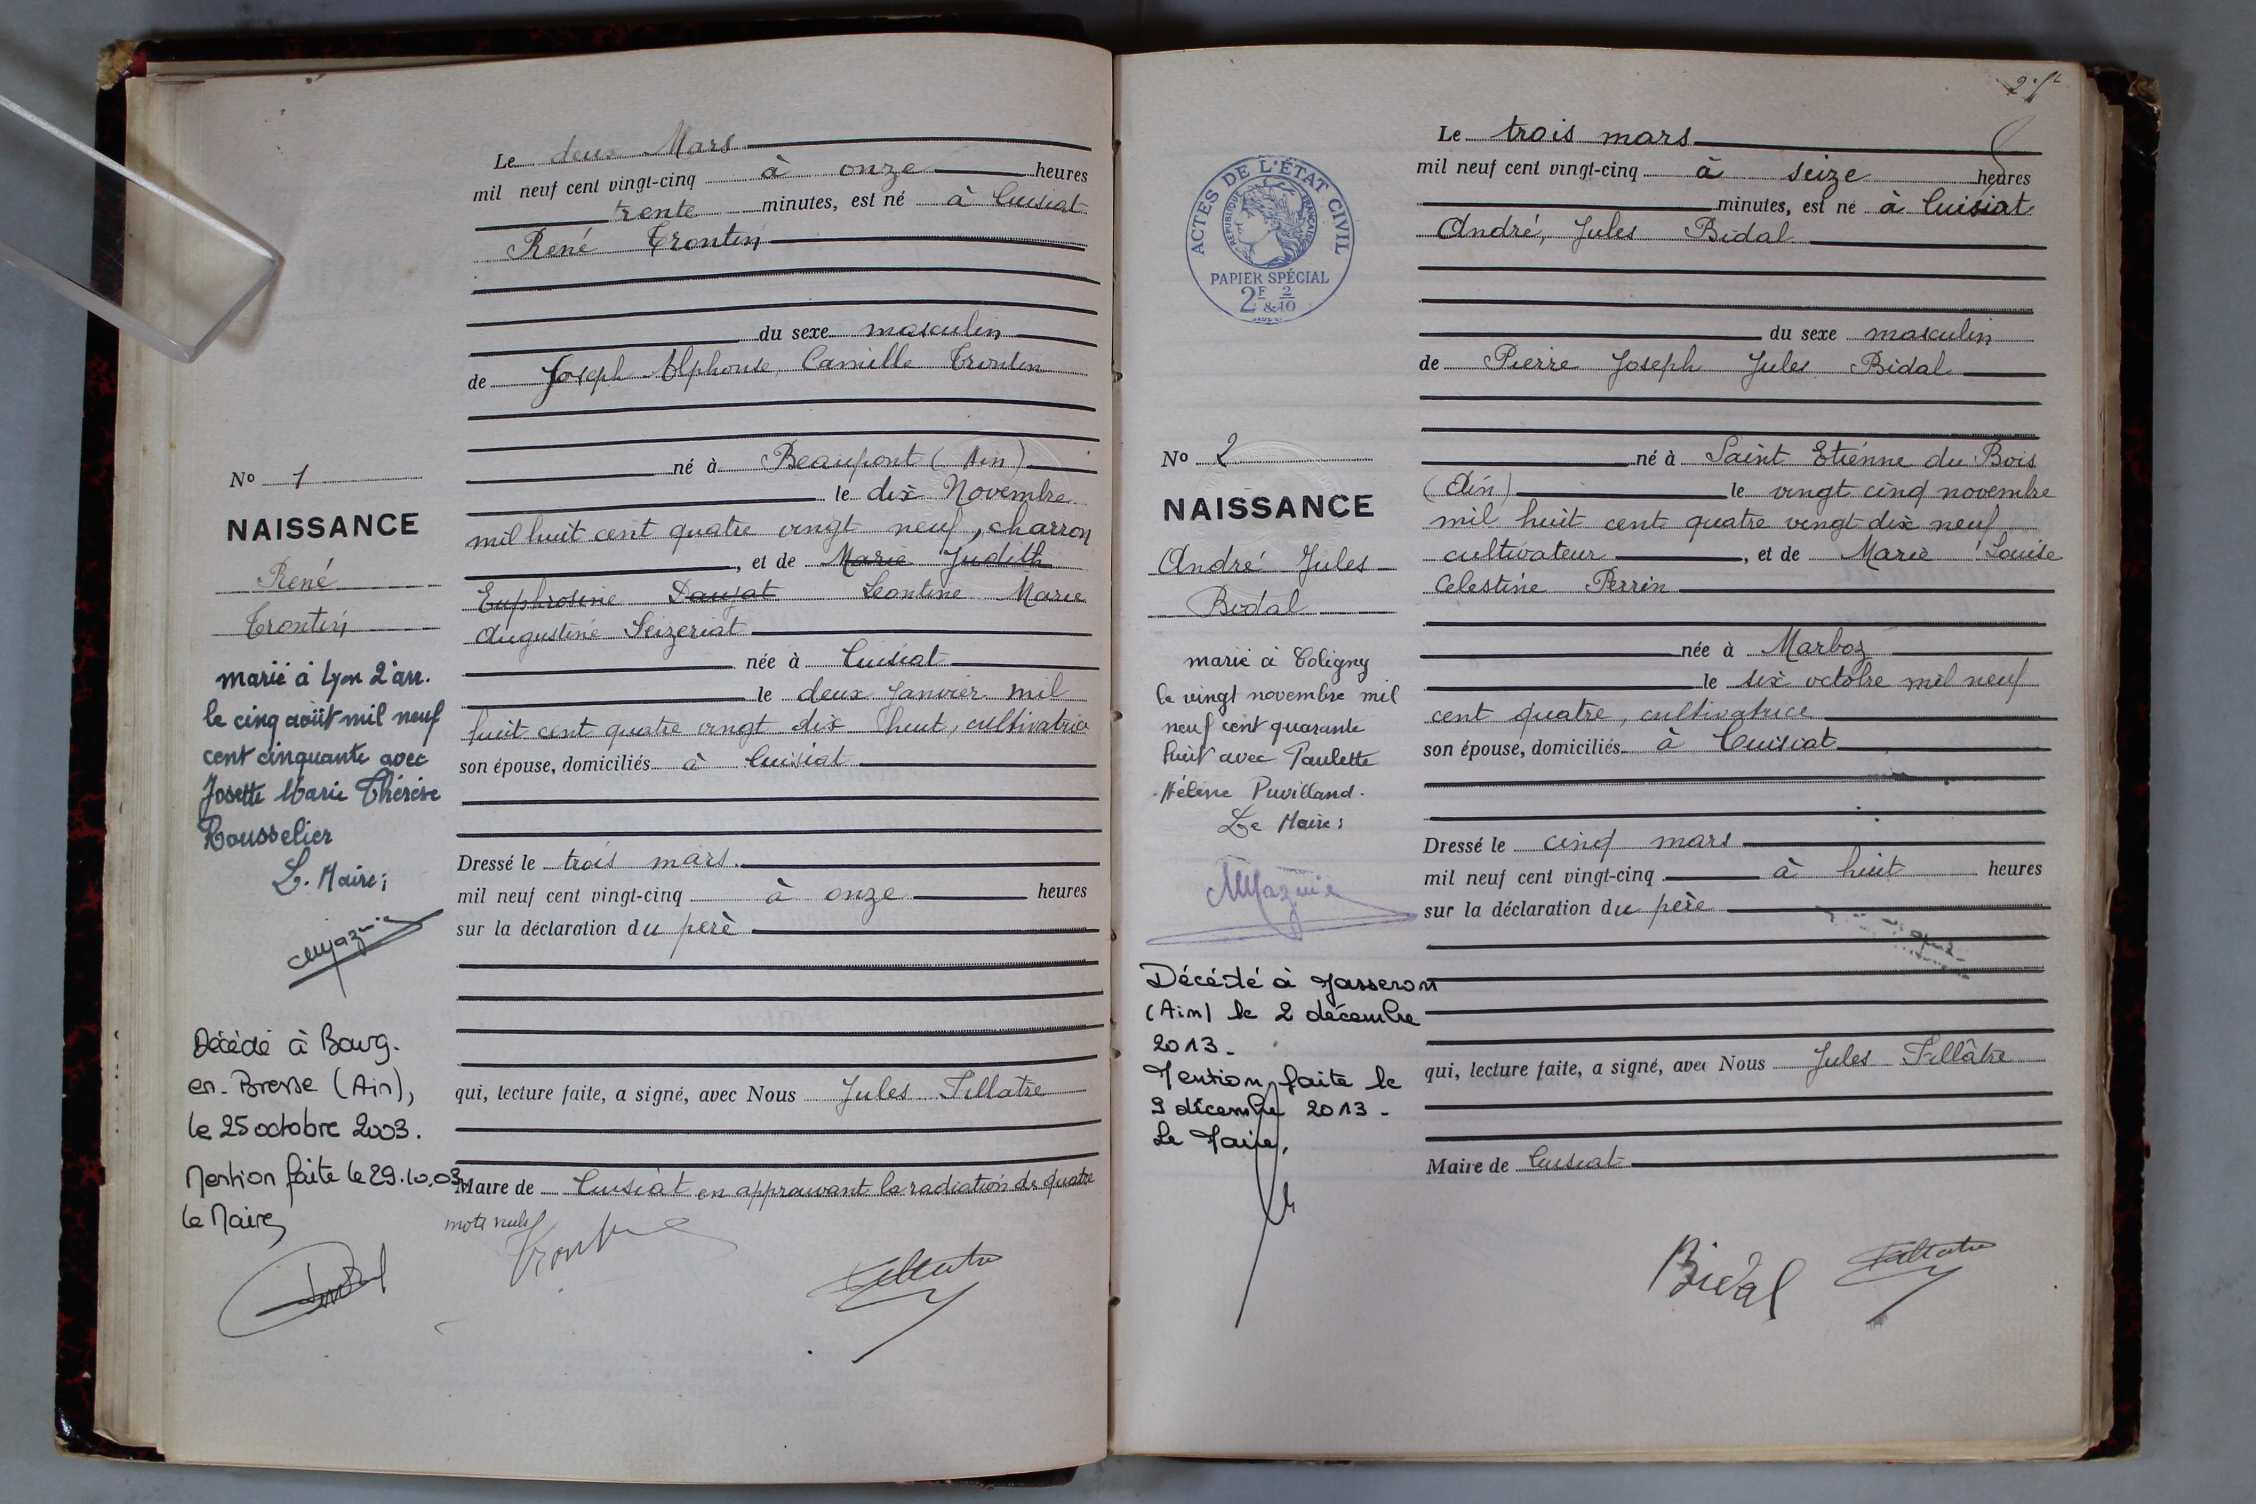 Le deux Mars
mil neuf cent vingt-cinq à onze heures
trente minutes, est né à Cuisiat
René Trontin
du sexe masculin
de Joseph Alphonse Camille Trontin
né à Beaupont (Ain)
le dix Novembre
mil huit cent quatre vingt neuf, charron
, et de Marie Judith
Euphrosine Daujat Leontine Marie
Augustine Seizeriat
née à Cuisiat
le deux Janvier mil
huit cent quatre vingt dix huit, cultivatrice
son épouse, domiciliés à Cuisiat
Dressé le trois mars
mil neuf cent vingt-cinq à onze heures
sur la déclaration du père
qui, lecture faite, a signé, avec Nous Jules Fillatre
Maire de Cuisiat en approuvant la radiation de quatre
mots nuls
Trontin
No 1
NAISSANCE
René
Trontin
marié à Lyon 2 arr.
le cinq août mil neuf
cent cinquante avec
Josette Marie Thérèse
Rousselier
Le Maire;
Décédé à Bourg-
en-Bresse (Ain),
le 25 octobre 2003.
Mention faite le 29.10.03
le Maire
2
Le trois mars
mil neuf cent vingt-cinq à seize heures
minutes, est né à Cuisiat
André, Jules Bidal
du sexe masculin
de Pierre Joseph Jules Bidal
né à Saint Etienne du Bois
(Ain) le vingt cinq novembre
mil huit cent quatre vingt dix neuf
cultivateur, et de Marie Louise
Celestine Perrin
née à Marboz
le six octobre mil neuf
cent quatre, cultivatrice
son épouse, domiciliés à Cuisiat
Dressé le cinq mars
mil neuf cent vingt-cinq à huit heures
sur la déclaration du père
qui, lecture faite, a signé, avec Nous Jules Fillâtre
Maire de Cuisiat
Bidal Fillatre
ACTES DE L'ÉTAT CIVIL
RÉPUBLIQUE FRANÇAISE
PAPIER SPÉCIAL
2F & 2/10
No 2
NAISSANCE
André Jules
Bidal
marié à Coligny
le vingt novembre mil
neuf cent quarante
huit avec Paulette
Hélène Puvilland.
Le Maire:
Décédé à Jasseron
(Ain) le 2 décembre
2013.
Mention faite le
9 décembre 2013.
Le Maire,